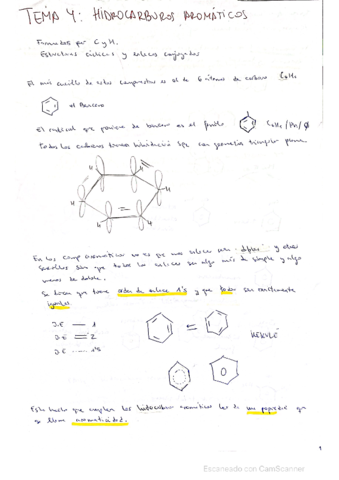 TEMA 4: HIDROCARBUROS AROMÁTICOS
Formados por C y H.
Estructuras cíclicas y enlaces conjugados
El más sencillo de estos compuestos es el de 6 átomos de carbono C₆H₆
el Benceno
El radical que proviene del benceno es el fenilo C₆H₅ / Ph / Ø
Todos los carbonos tienen hibridación sp² con geometría triangular plana
H
H
H
H
H
H
En los comp aromáticos no es que unos enlaces sean dobles y otros
sencillos sino que todos los enlaces son algo más de simple y algo
menos de doble.
Se dice que tienen orden de enlace 1'5 y que todos son exactamente
iguales.
O.E — 1
O.E = 2
O.E ...... 1'5
KEKULÉ
Esto hace que cumplen los hidrocarburos aromáticos los da una propiedad que
se llama aromaticidad.
1
Escaneado con CamScanner